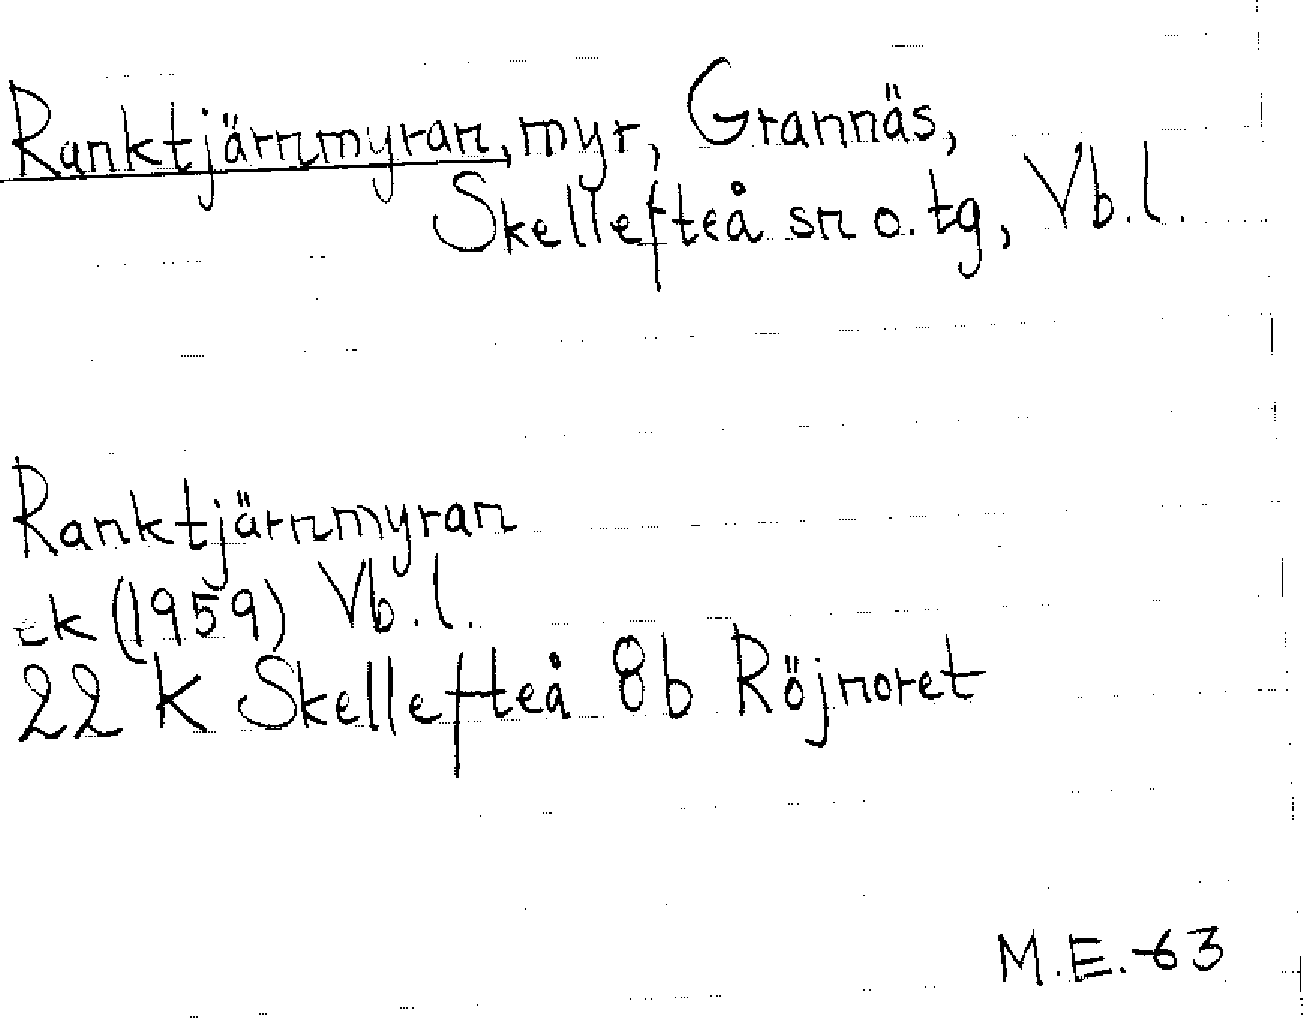 Ranktjärnmyran, myr, Grannäs,
Skellefteå sn o. tg, Vb.l.
Ranktjärnmyran
ek (1959) Vb.l.
22 K Skellefteå 8b Röjnoret
M.E.-63